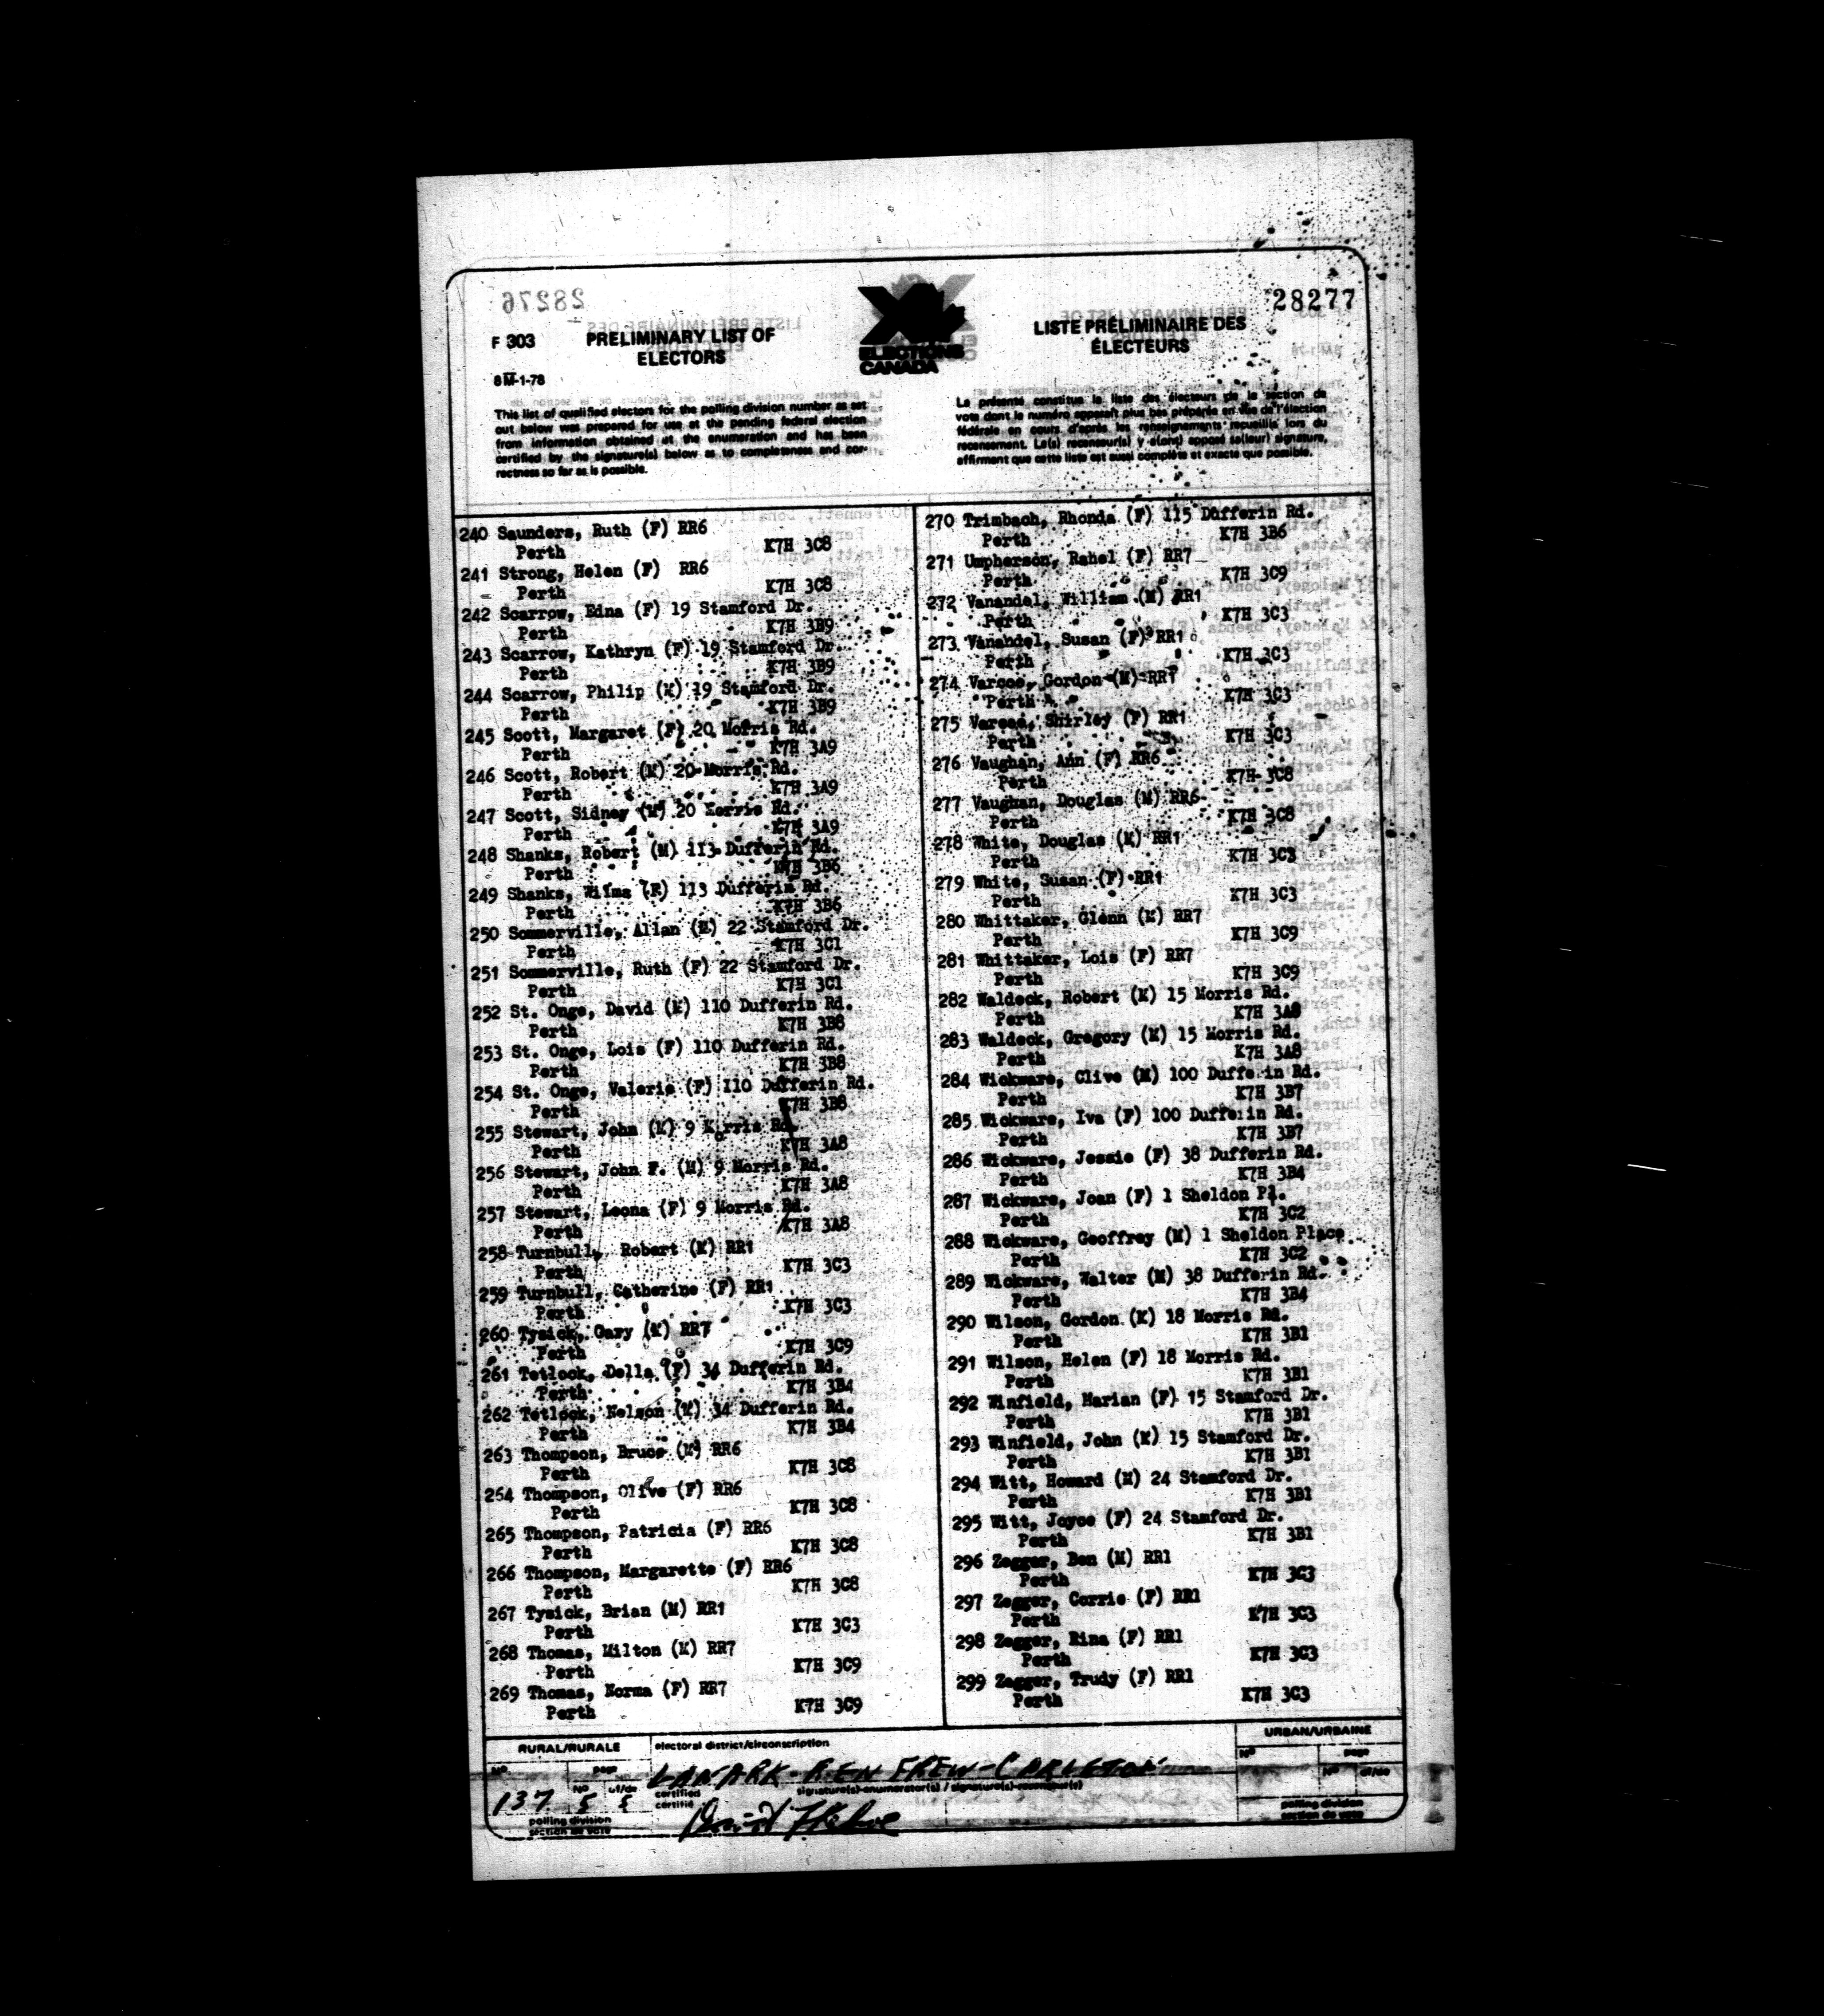 28277
F 303
PRELIMINARY LIST OF
ELECTORS
8M-1-78
ELECTIONS
CANADA
LISTE PRÉLIMINAIRE DES
ÉLECTEURS
This list of qualified electors for the polling division number as set
out below was prepared for use at the pending federal election
from information obtained at the enumeration and has been
certified by the signature(s) below as to completeness and cor-
rectness so far as is possible.
La présente constitue la liste des électeurs de la section de
vote dont le numéro apparaît plus bas préparée en vue de l'élection
fédérale en cours d'après les renseignements recueillis lors du
recensement. Le(s) recenseur(s) y a(ont) apposé sa(leur) signature,
affirment que cette liste est aussi complète et exacte que possible.
240 Saunders, Ruth (F) RR6
Perth K7H 3C8
241 Strong, Helen (F) RR6
Perth K7H 3C8
242 Scarrow, Edna (F) 19 Stamford Dr.
Perth K7H 3B9
243 Scarrow, Kathryn (F) 19 Stamford Dr.
Perth K7H 3B9
244 Scarrow, Philip (M) 19 Stamford Dr.
Perth K7H 3B9
245 Scott, Margaret (F) 20 Morris Rd.
Perth K7H 3A9
246 Scott, Robert (M) 20 Morris Rd.
Perth K7H 3A9
247 Scott, Sidney (M) 20 Morris Rd.
Perth K7H 3A9
248 Shanks, Robert (M) 113 Dufferin Rd.
Perth K7H 3B6
249 Shanks, Wilma (F) 113 Dufferin Rd.
Perth K7H 3B6
250 Sommerville, Allan (M) 22 Stamford Dr.
Perth K7H 3C1
251 Sommerville, Ruth (F) 22 Stamford Dr.
Perth K7H 3C1
252 St. Onge, David (M) 110 Dufferin Rd.
Perth K7H 3B8
253 St. Onge, Lois (F) 110 Dufferin Rd.
Perth K7H 3B8
254 St. Onge, Valerie (F) 110 Dufferin Rd.
Perth K7H 3B8
255 Stewart, John (M) 9 Morris Rd.
Perth K7H 3A8
256 Stewart, John F. (M) 9 Morris Rd.
Perth K7H 3A8
257 Stewart, Leona (F) 9 Morris Rd.
Perth K7H 3A8
258 Turnbull, Robert (M) RR1
Perth K7H 3C3
259 Turnbull, Catherine (F) RR1
Perth K7H 3C3
260 Tysick, Gary (M) RR7
Perth K7H 3C9
261 Tetlock, Della (F) 34 Dufferin Rd.
Perth K7H 3B4
262 Tetlock, Nelson (M) 34 Dufferin Rd.
Perth K7H 3B4
263 Thompson, Bruce (M) RR6
Perth K7H 3C8
264 Thompson, Olive (F) RR6
Perth K7H 3C8
265 Thompson, Patricia (F) RR6
Perth K7H 3C8
266 Thompson, Margarette (F) RR6
Perth K7H 3C8
267 Tysick, Brian (M) RR1
Perth K7H 3C3
268 Thomas, Milton (M) RR7
Perth K7H 3C9
269 Thomas, Norma (F) RR7
Perth K7H 3C9
270 Trimbach, Rhonda (F) 115 Dufferin Rd.
Perth K7H 3B6
271 Umpherson, Rahel (F) RR7
Perth K7H 3C9
272 Vanandel, William (M) RR1
Perth K7H 3C3
273 Vanandel, Susan (F) RR1
Perth K7H 3C3
274 Varcoe, Gordon (M) RR1
Perth K7H 3C3
275 Varcoe, Shirley (F) RR1
Perth K7H 3C3
276 Vaughan, Ann (F) RR6
Perth K7H 3C8
277 Vaughan, Douglas (M) RR6
Perth K7H 3C8
278 White, Douglas (M) RR1
Perth K7H 3C3
279 White, Susan (F) RR1
Perth K7H 3C3
280 Whittaker, Glenn (M) RR7
Perth K7H 3C9
281 Whittaker, Lois (F) RR7
Perth K7H 3C9
282 Waldeck, Robert (M) 15 Morris Rd.
Perth K7H 3A8
283 Waldeck, Gregory (M) 15 Morris Rd.
Perth K7H 3A8
284 Wickware, Clive (M) 100 Dufferin Rd.
Perth K7H 3B7
285 Wickware, Iva (F) 100 Dufferin Rd.
Perth K7H 3B7
286 Wickware, Jessie (F) 38 Dufferin Rd.
Perth K7H 3B4
287 Wickware, Joan (F) 1 Sheldon Pl.
Perth K7H 3C2
288 Wickware, Geoffrey (M) 1 Sheldon Place
Perth K7H 3C2
289 Wickware, Walter (M) 38 Dufferin Rd.
Perth K7H 3B4
290 Wilson, Gordon (M) 18 Morris Rd.
Perth K7H 3B1
291 Wilson, Helen (F) 18 Morris Rd.
Perth K7H 3B1
292 Winfield, Marian (F) 15 Stamford Dr.
Perth K7H 3B1
293 Winfield, John (M) 15 Stamford Dr.
Perth K7H 3B1
294 Witt, Howard (M) 24 Stamford Dr.
Perth K7H 3B1
295 Witt, Joyce (F) 24 Stamford Dr.
Perth K7H 3B1
296 Zegger, Ben (M) RR1
Perth K7H 3C3
297 Zegger, Corrie (F) RR1
Perth K7H 3C3
298 Zegger, Rina (F) RR1
Perth K7H 3C3
299 Zegger, Trudy (F) RR1
Perth K7H 3C3
RURAL/RURALE
electoral district/circonscription
URBAN/URBAINE
Nº page
Nº of/de
LANARK-RENFREW-CARLETON
137 5 5
certified
certifié
signature(s)-enumerator(s) / signature(s)-recenseur(s)
David
polling division
section de vote
Nº page
Nº of/de
polling division
section de vote